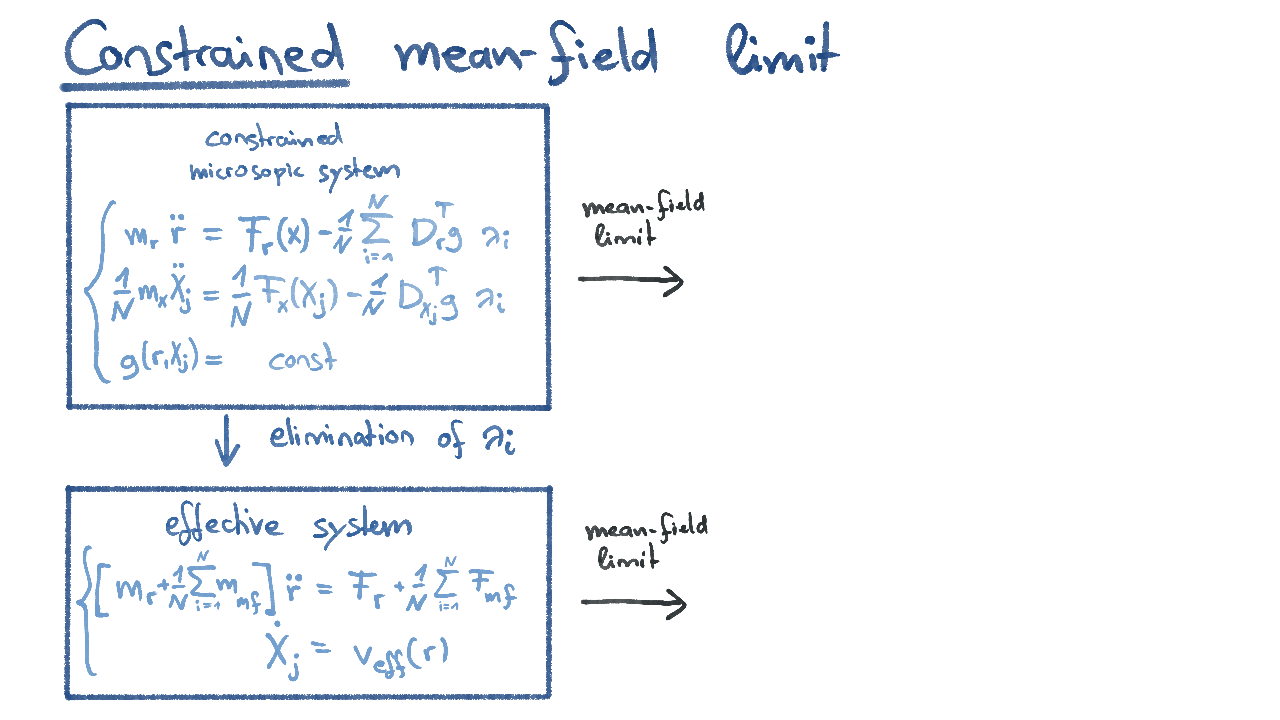 Constrained mean-field limit
constrained
microsopic system
m_r r̈ = F_r(x) - 1/N ∑_{i=1}^N D_r^T g λ_i
1/N m_x Ẍ_j = 1/N F_x(X_j) - 1/N D_{X_j}^T g λ_i
g(r, X_j) = const
mean-field
limit
elimination of λ_i
effective system
[m_r + 1/N ∑_{i=1}^N m_{mf}] r̈ = F_r + 1/N ∑_{i=1}^N F_{mf}
Ẋ_j = v_{eff}(r)
mean-field
limit